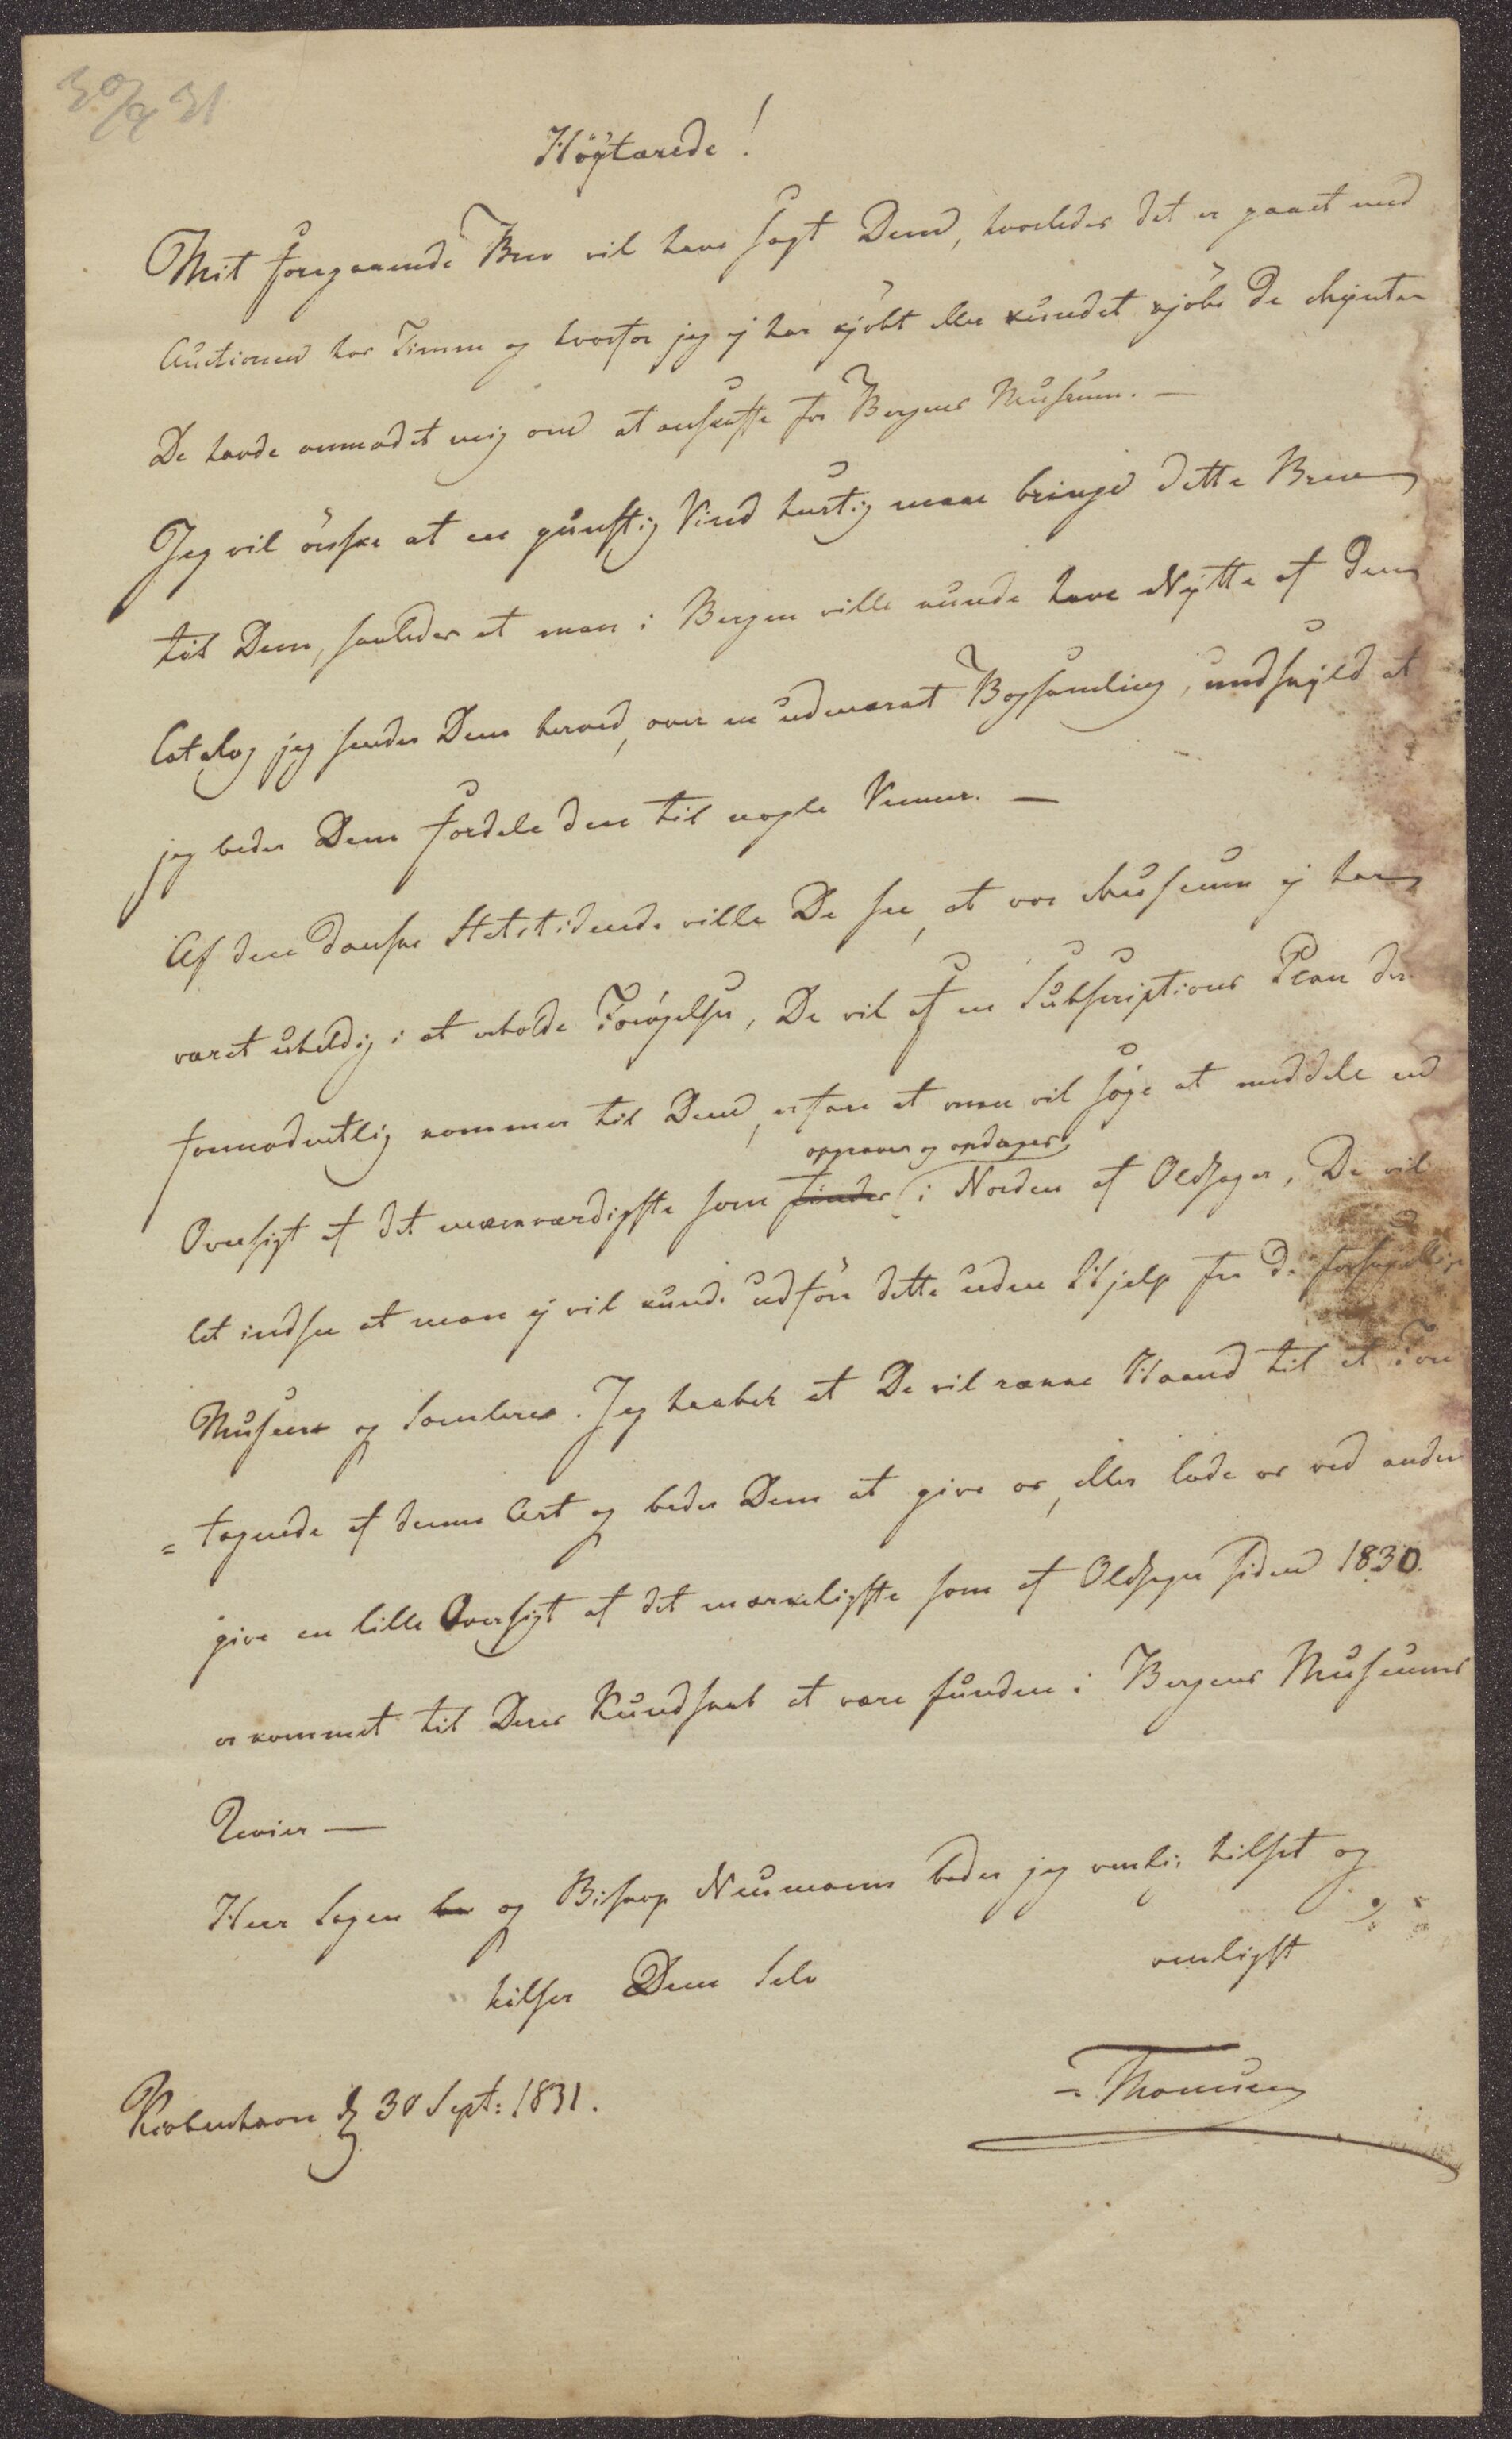 30/9 31
Höÿtærede!
Mit foregaaende Brev vil have sagt Dem, hvorledes det er gaaet med
Auctionen hos Timm og hvorfor jeg ej har kjöbt eller kundet kjöbe de Mÿnter
De havde anmodet mig om at anskaffe for Bergens Museum. —
Jeg vil önske at en gunstig Vind hurtig maae bringe dette Brev
til Dem, saaledes at man i Bergen ville kunde have Nÿtte af den
Catalog jeg sender Dem herved, over en udmærket Bogsamling, undskÿld at
jeg beder Dem fordele den til nogle Venner. —
Af den danske Statstidende ville De see, at vor Museum ej har
været uheldig i at erholde Forögelser, De vil af en Subscriptions Plan der
formodentlig kommer til Dem, erfare at man vil söge at meddele en
opgraves og opdages
Oversigt af det mærkværdigste som findes i Norden af Oldsager, De vil
let indsee at man ej vil kunde udföre dette uden Hjelp fra de forskjellige
Museer og Samlere. Jeg haaber at De vil række Haand til et Fore
= tagende af denne Art og beder Dem at give os, eller lade os ved andre
give en lille Oversigt af det mærkeligste som af Oldsager siden 1830.
er kommet til Deres Kundskab at være funden i Bergens Museums
Revier —
Herr Sagen og Biskop Neumann beder jeg venlig hilset og
hilser Dem Selv venligst
Kiobenhavn d 30 Sept: 1831.
Thomsen